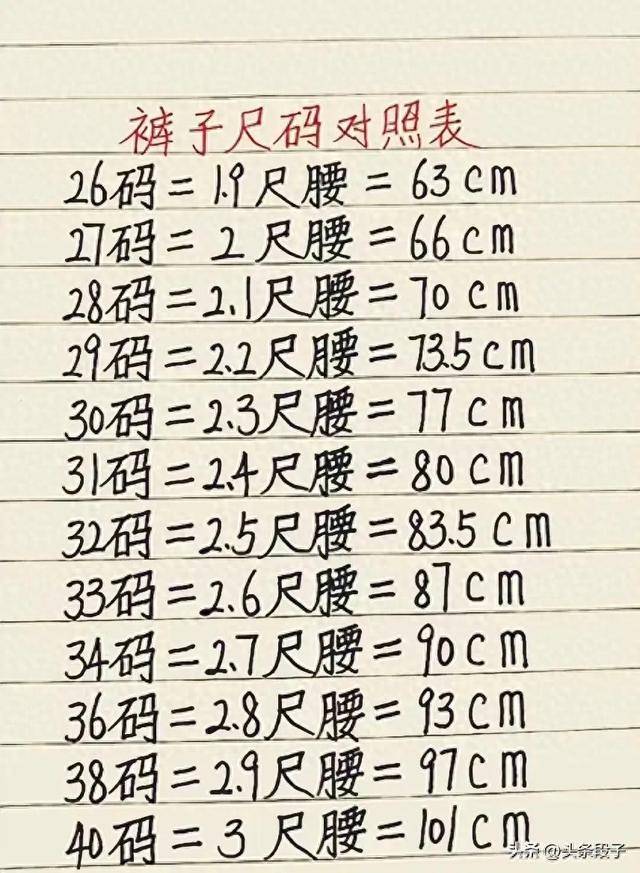 裤子尺码对照表
26码=1.9尺腰=63cm
27码=2尺腰=66cm
28码=2.1尺腰=70cm
29码=2.2尺腰=73.5cm
30码=2.3尺腰=77cm
31码=2.4尺腰=80cm
32码=2.5尺腰=83.5cm
33码=2.6尺腰=87cm
34码=2.7尺腰=90cm
36码=2.8尺腰=93cm
38码=2.9尺腰=97cm
40码=3尺腰=101cm
头条@头条段子